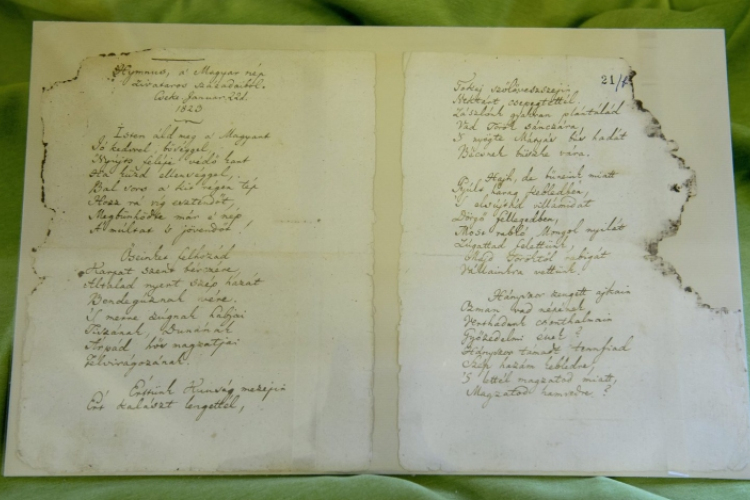 Hymnus, a' Magyar nép
zivataros századaiból.
Cseke Januar. 22d.
1823
Isten áldd meg a' Magyart
Jó kedvvel, bőséggel,
Nyújts feléje védő kart
Ha küzd ellenséggel,
Bal sors a' kit régen tép
Hozz rá víg esztendőt,
Megbűnhődte már e' nép
A' múltat 's jövendőt!
Őseinket felhozád
Kárpát szent bérczére,
Általad nyert szép hazát
Bendegúznak vére.
'S merre zúgnak habjai
Tiszának, Dunának
Árpád hős magzatjai
Felvirágozának.
Értünk Kunság mezein
Ért kalászt lengettél,
21/
Tokaj szőlővesszein
Nektárt csepegtettél.
Zászlónk gyakran plántálád
Vad Török sánczára
'S nyögte Mátyás bús hadát
Bécsnek büszke vára.
Hajh, de bűneink miatt
Gyúlt harag kebledben,
'S elsújtád villámidat
Dörgő fellegedben,
Most rabló Mongol nyilát
Zúgattad felettünk,
Majd Töröktől rabigát
Vállainkra vettünk.
Hányszor zengett ajkain
Ozman vad népének
Vert hadunk csonthalmain
Győzedelmi ének!
Hányszor támadt tennfiad
Szép hazám kebledre,
'S lettél magzatod miatt,
Magzatod hamvvedre?